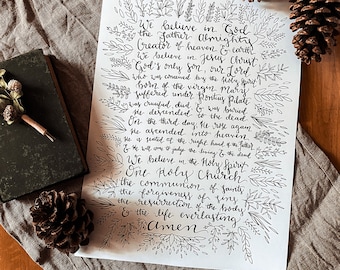 We believe in God
the Father Almighty
Creator of heaven & earth
We believe in Jesus Christ
God's only son our Lord
who was conceived by the Holy Spirit
born of the virgin Mary
suffered under Pontius Pilate
was crucified, died, & was buried
he descended to the dead
On the third day, He rose again
he ascended into heaven
he is seated at the right hand of the Father
& He will come to judge the living & the dead
We believe in the Holy Spirit
One Holy Church
the communion of saints
the forgiveness of sins
the resurrection of the body
& the life everlasting
amen